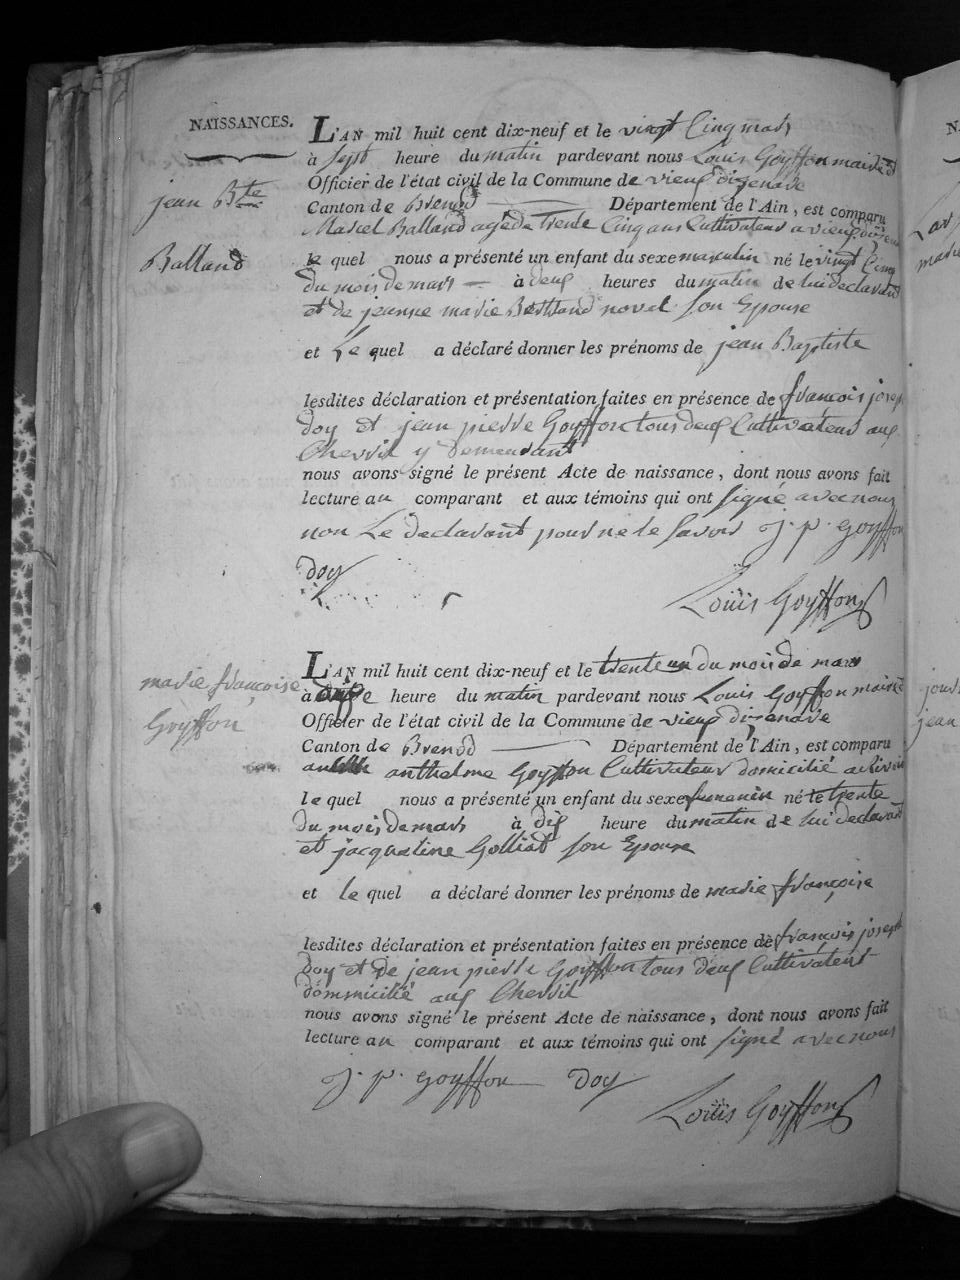 NAISSANCES.
L'AN mil huit cent dix-neuf et le vingt Cinq mars
à sept heure du matin pardevant nous Louis Goyffon maire et
Officier de l'état civil de la Commune de vieux d'izenave
jean Bte
Canton de Brenod Département de l'Ain, est comparu
Marcel Balland age de trente Cinq ans Cultivateur a vieux d'izen
Balland
le quel nous a présenté un enfant du sexe masculin né le vingt Cinq
du mois de mars à deux heures du matin de lui declarant
et de jeanne marie Bertrand novel son Epouse
et Le quel a déclaré donner les prénoms de jean Baptiste
lesdites déclaration et présentation faites en présence de françois josep
doy et jean pierre Goyffon tous deux Cultivateur aux
Chevril y demeurant
nous avons signé le présent Acte de naissance, dont nous avons fait
lecture au comparant et aux témoins qui ont signé avec nous
non Le declarant pour ne le savoir j. p. goyffon
doy
Louïs Goyffon
L'AN mil huit cent dix-neuf et le trente un du mois de mars
marie françoise
à heure du matin pardevant nous Louis Goyffon maire
Goyffon
Officier de l'état civil de la Commune de vieux d'izenave
Canton de Brenod Département de l'Ain, est comparu
anthelme Goyffon Cultivateur domicilié
le quel nous a présenté un enfant du sexe femenin né le trente
du mois de mars à dix heure du matin de lui declarant
et jacqueline Golliat son Epouse
et le quel a déclaré donner les prénoms de marie françoise
lesdites déclaration et présentation faites en présence de françois joseph
doy et de jean pierre Goyffon tous deux Cultivateur
dommicilié aux Chevril
nous avons signé le présent Acte de naissance, dont nous avons fait
lecture au comparant et aux témoins qui ont signé avec nous
j. p. goyffon doy
Louïs Goyffon